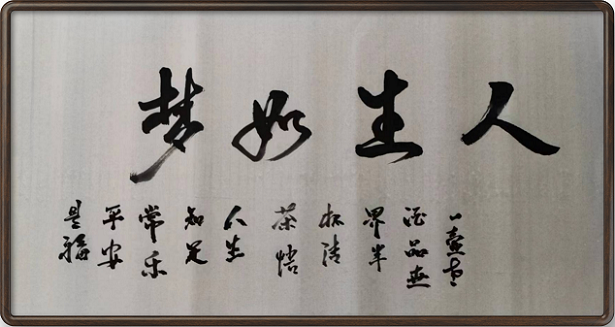 人生如梦
一壶老
酒品世
界半
杯清
茶悟
人生
知足
常乐
平安
是福